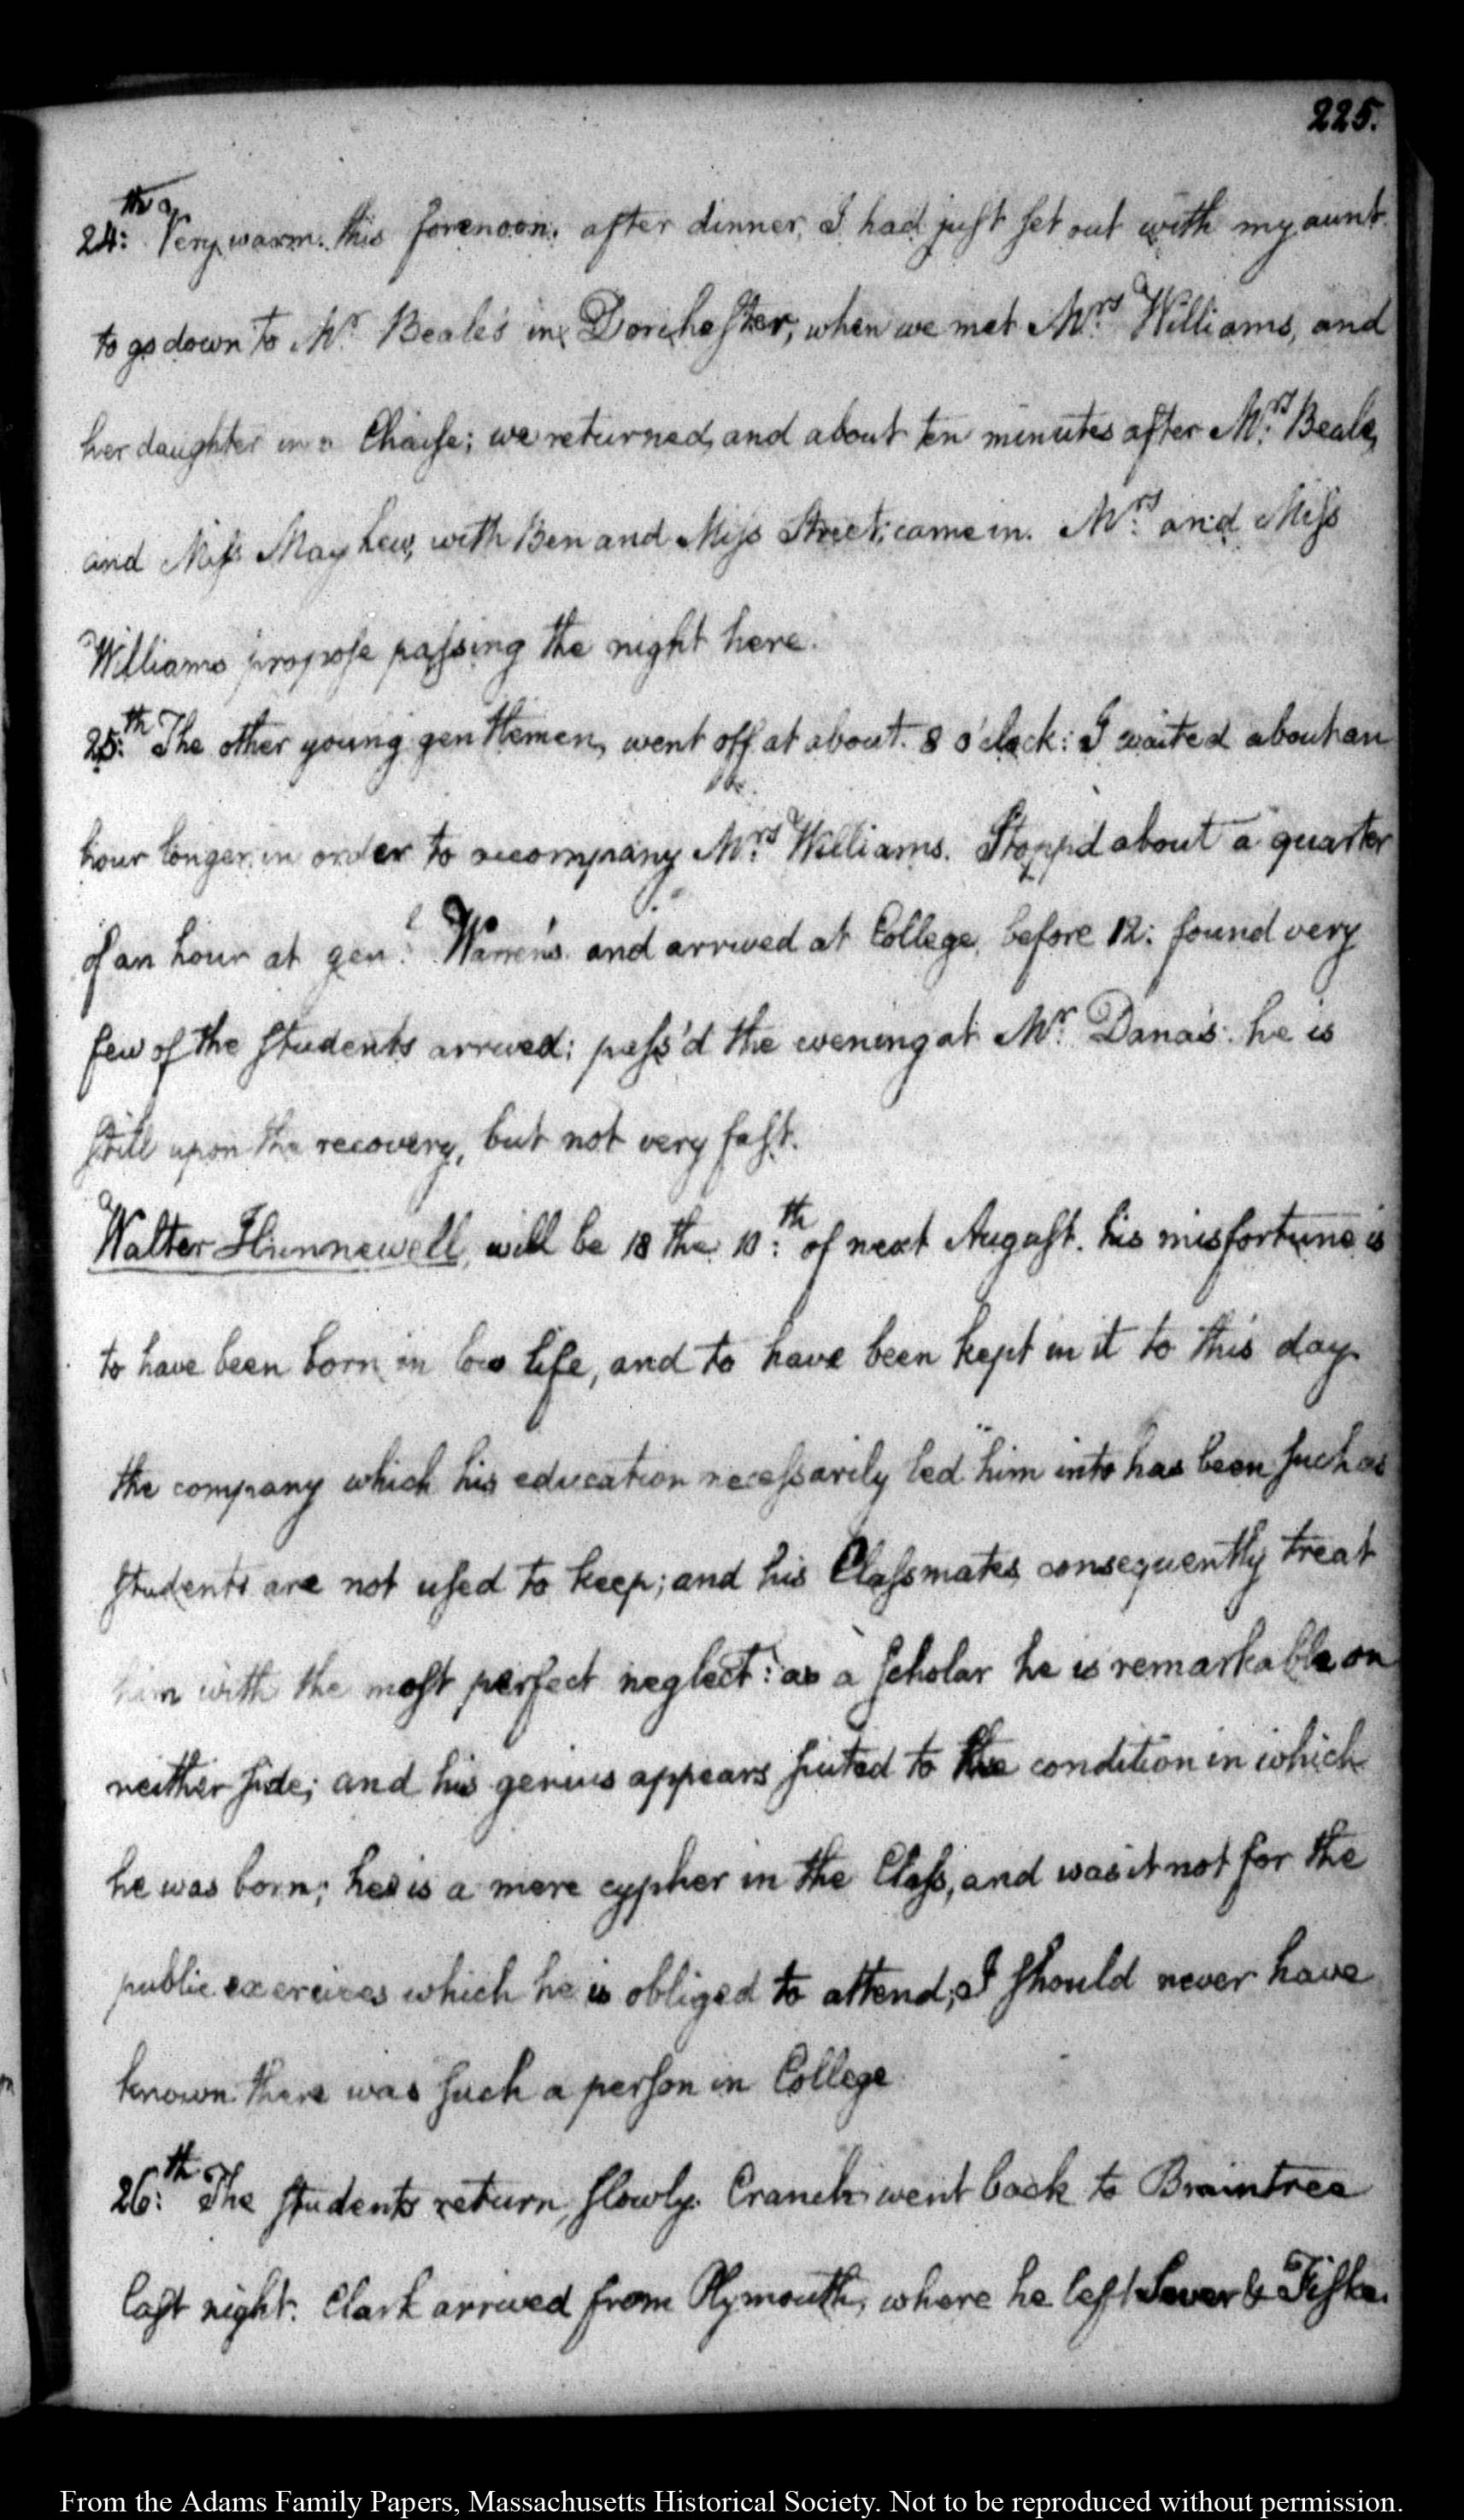 225.
24:th Very warm this forenoon. after dinner, I had just set out with my aunt
to go down to Mr. Beale's in Dorchester, when we met Mrs. Williams, and
her daughter in a Chaise; we returned, and about ten minutes after Mrs. Beale,
and Miss Mayhew, with Ben and Miss Street, came in. Mrs. and Miss
Williams propose passing the night here.
25:th The other young gentlemen, went off at about 8 o'clock: I waited about an
hour longer, in order to accompany Mrs. Williams. Stopp'd about a quarter
of an hour at genl. Warren's and arrived at College, before 12: found very
few of the students arrived; pass'd the evening at Mr. Dana's: he is
still upon the recovery, but not very fast.
Walter Hunnewell, will be 18 the 10:th of next August. his misfortune is
to have been born in low life, and to have been kept in it to this day.
the company which his education necessarily led him into has been such as
students are not used to keep; and his Classmates consequently treat
him with the most perfect neglect: as a scholar he is remarkable on
neither side; and his genius appears suited to the condition in which
he was born; he is a mere cypher in the Class, and was it not for the
public exercices which he is obliged to attend, I should never have
known there was such a person in College
26:th The students return, slowly. Cranch went back to Braintree
last night. Clark arrived from Plymouth, where he left Sever & Fiske.
From the Adams Family Papers, Massachusetts Historical Society. Not to be reproduced without permission.